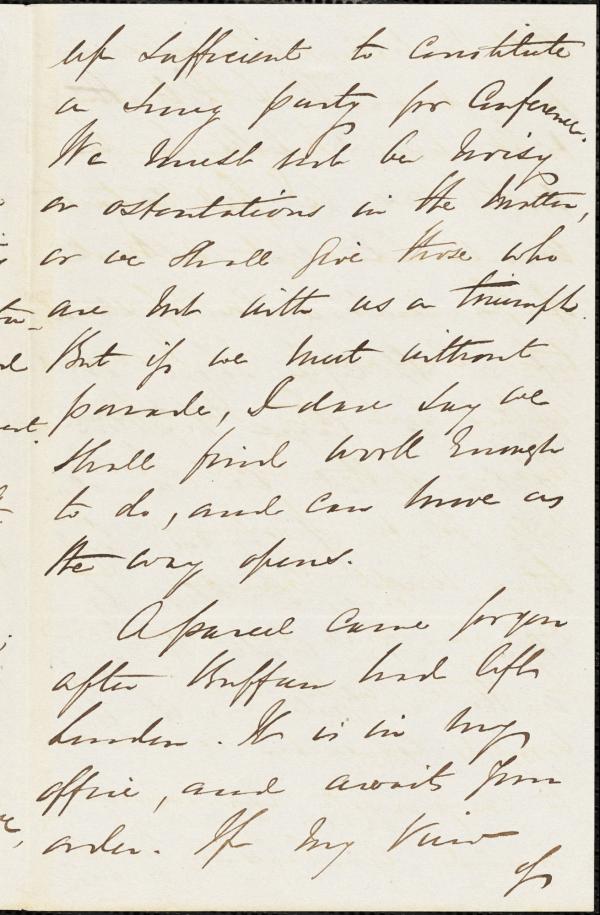 up sufficient to constitute
a snug party for Conference.
We must not be noisy
or ostentatious in the matter,
or we shall give those who
are not with us a triumph.
But if we meet without
parade, I dare say we
shall find work enough
to do, and can move as
the way opens.
A parcel came for you
after Buffum had left
London. It is in my
office, and awaits your
order. If my view
of